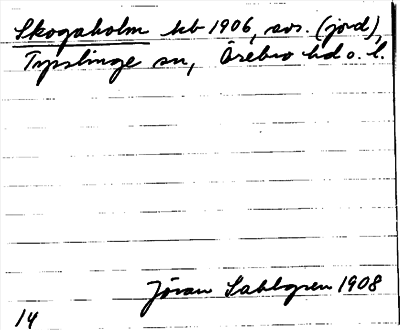 Skogaholm hb 1906, avs. (jord),
Tysslinge sn, Örebro hd o. l.
Jöran Sahlgren 1908
14